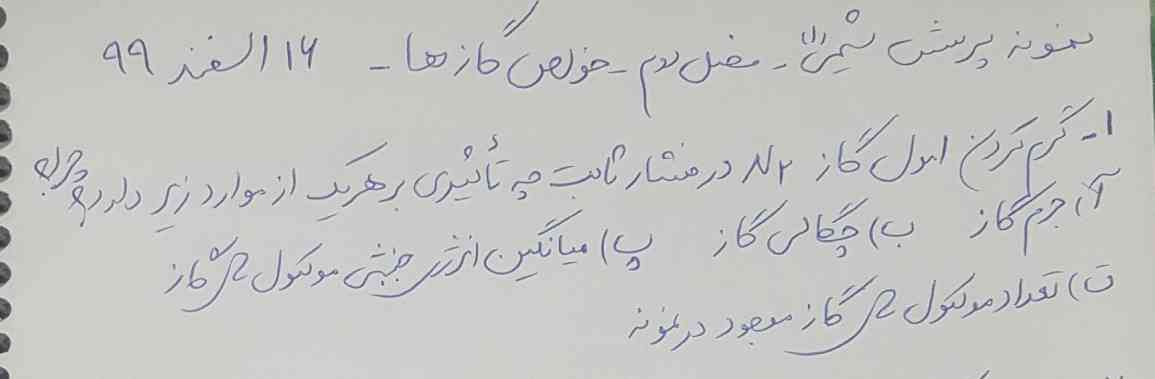 نمونه پرسش شیمی (۱) - فصل دوم - خواص گازها - ۱۶ اسفند ۹۹
۱- گرم کردن ۱مول گاز N۲ در فشار ثابت چه تأثیری بر هریک از موارد زیر دارد؟ چرا؟
آ) جرم گاز ب) چگالی گاز پ) میانگین انرژی جنبشی مولکول های گاز
ت) تعداد مولکول های گاز موجود در نمونه